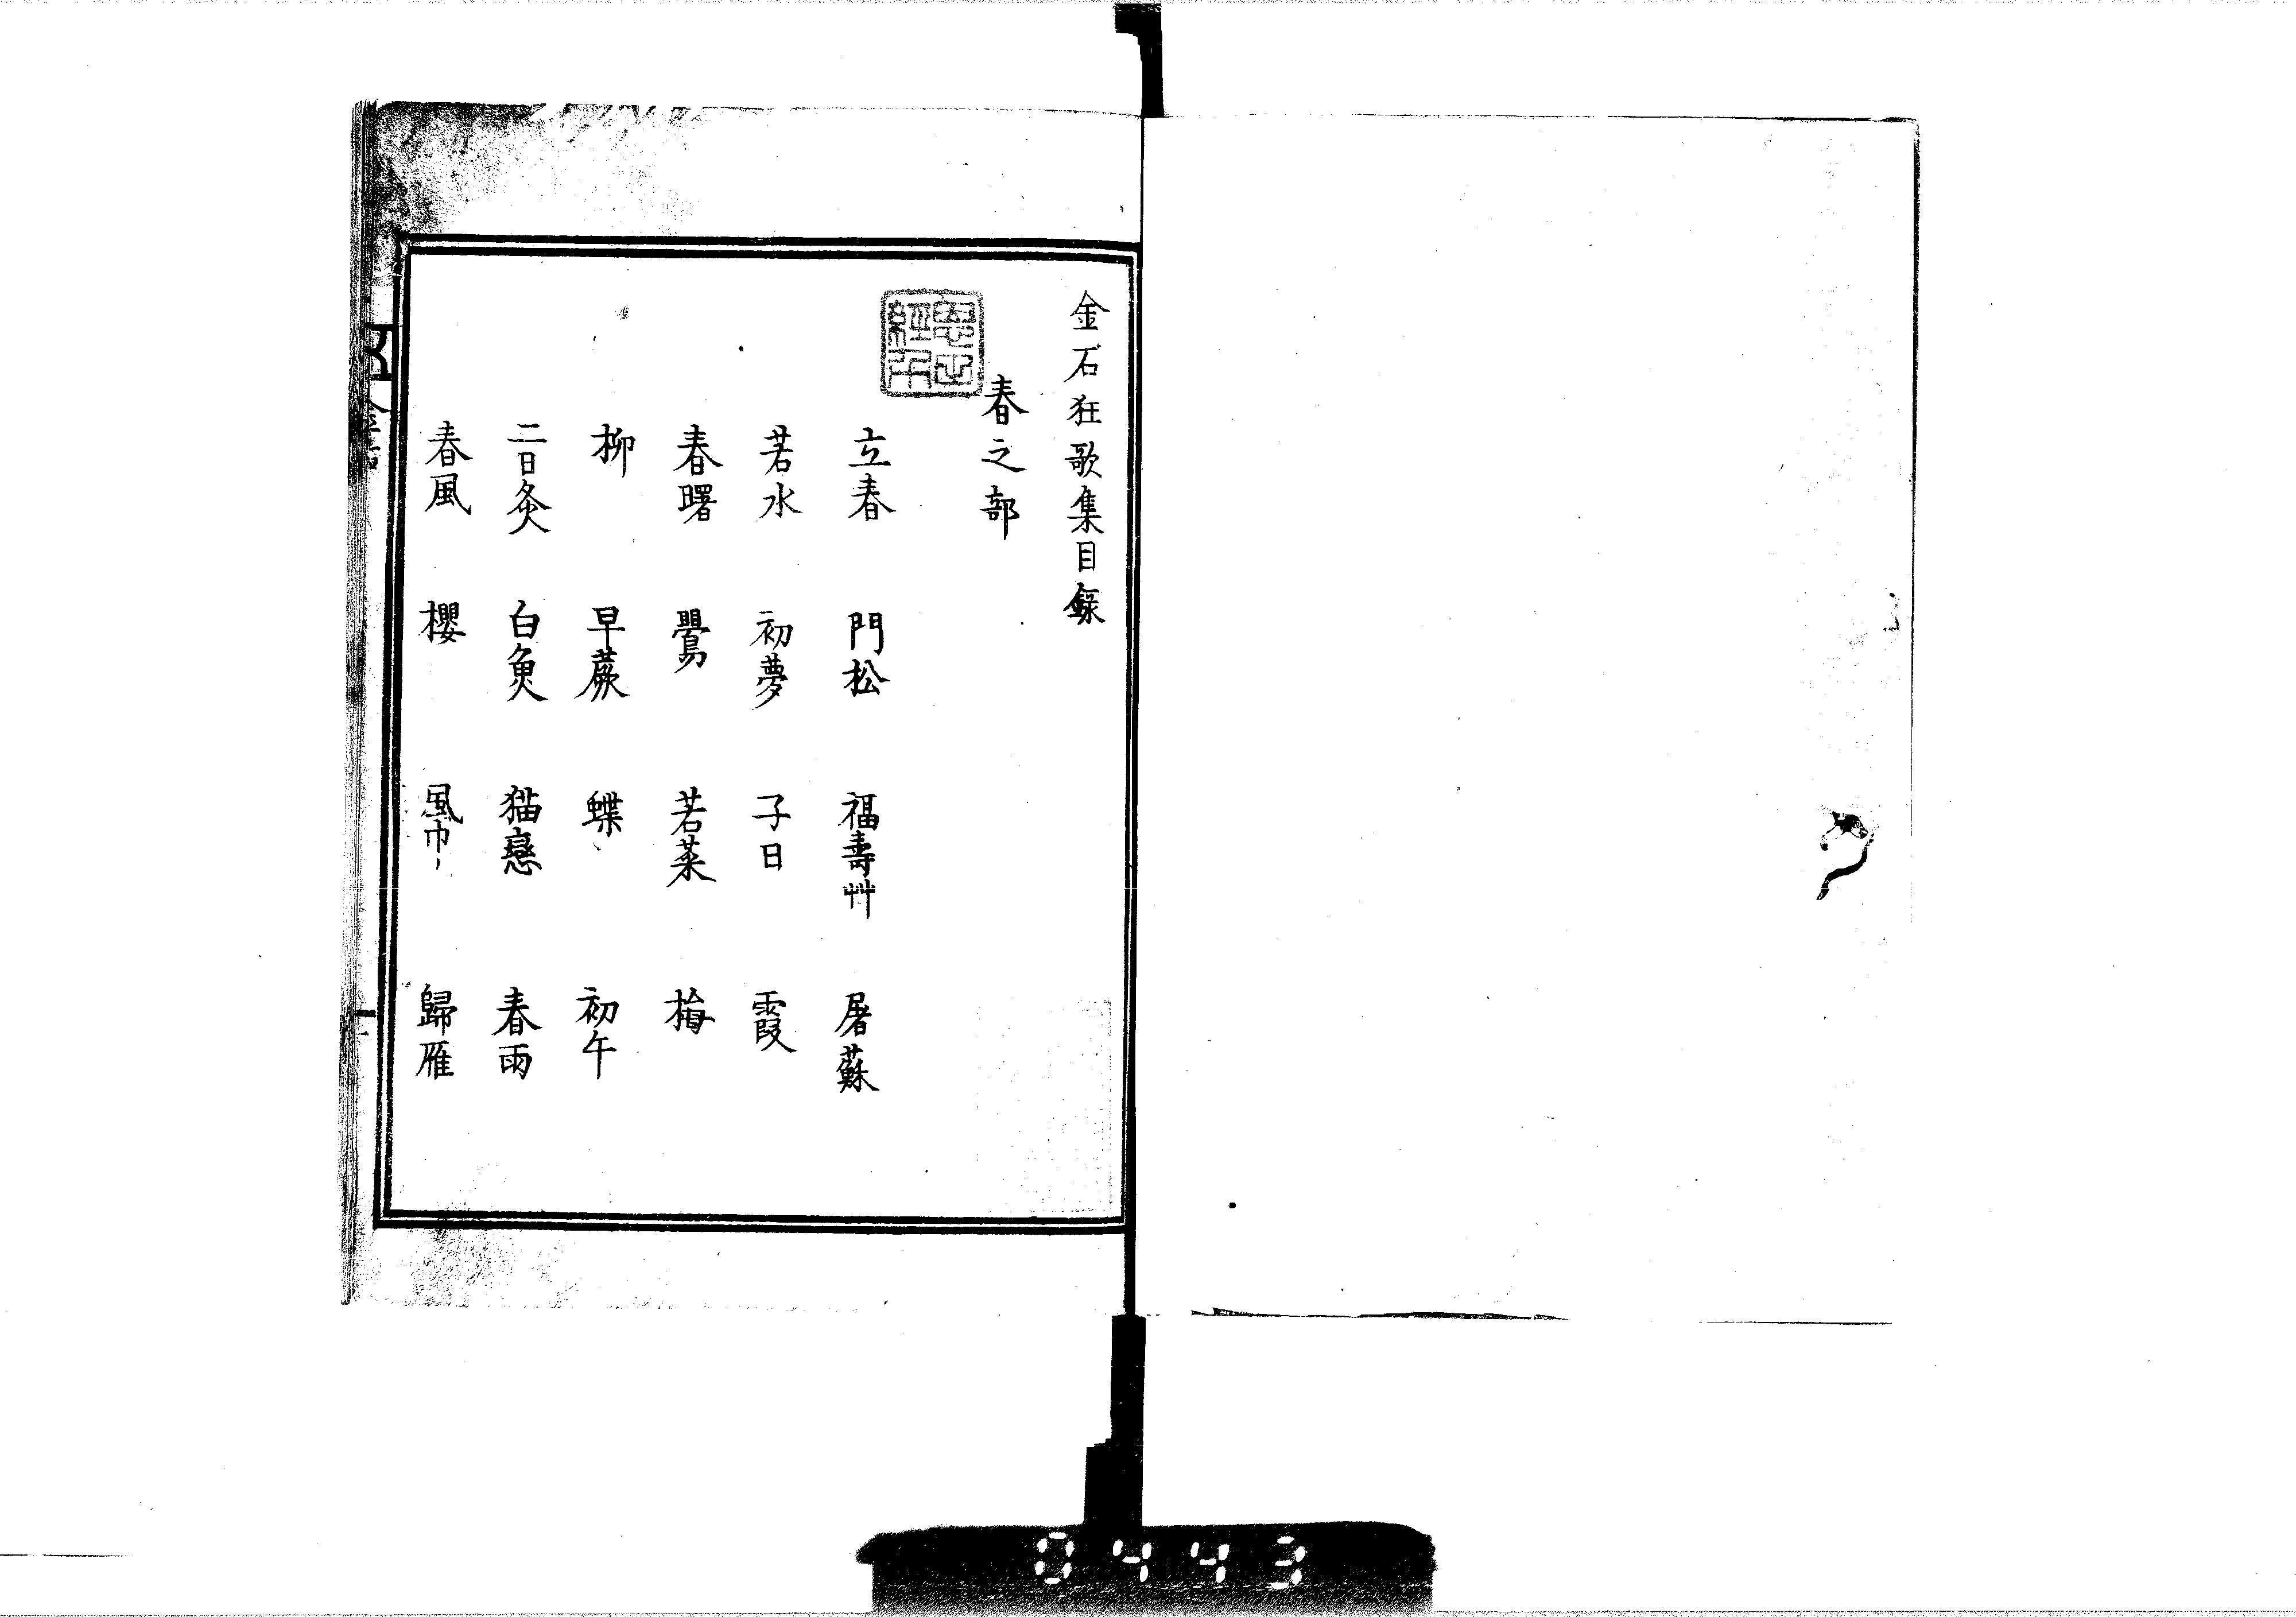 金石狂歌集目録
春之部
立春 門松 福壽艸 屠蘇
若水 初夢 子日 霞
春曙 鶯 若菜 梅
柳 早蕨 蝶 初午
二日灸 白魚 猫戀 春雨
春風 櫻 風巾 歸雁
0443